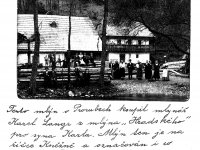 Tento mlýn v Proubech koupil mlynář
Karel Lange z mlýna „Hradského"
pro syna Karla. Mlýn ten je na
říčce Knéžné a označován i v